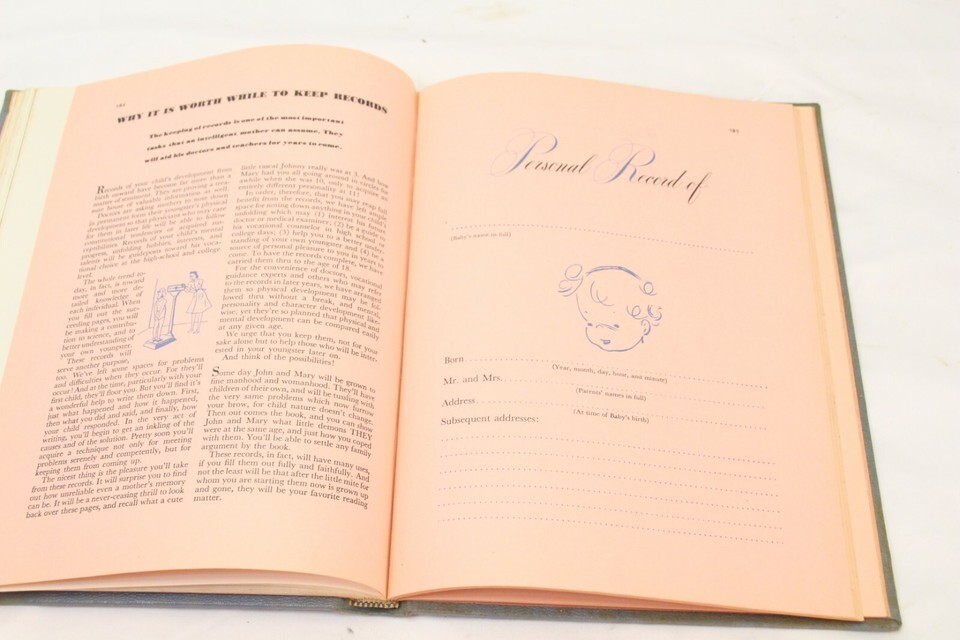 WHY IT IS WORTH WHILE TO KEEP RECORDS
The keeping of records is one of the most important
tasks that an intelligent mother can assume. They
will aid his doctors and teachers for years to come.
Records of your child's development from
birth onward have become far more than a
matter of sentiment. They are proving a treasure
house of valuable information as well.
Doctors are asking mothers to note down
in permanent form their youngster's physical
development so that physicians who may care
for them in later life will be able to follow
constitutional tendencies or acquired sus-
ceptibilities. Records of your child's mental
progress, unfolding hobbies, interests, and
talents will be guideposts toward his voca-
tional choice at the high-school and college
level.
The whole trend to-
day, in fact, is toward
more and more de-
tailed knowledge of
each individual. When
you fill out the suc-
ceeding pages, you will
be making a contribu-
tion to science, and to
better understanding of
your own youngster.
These records will
serve another purpose,
too. We've left some spaces for problems
and difficulties when they occur. For they'll
occur! And at the time, particularly with your
first child, they'll floor you. But you'll find it's
a wonderful help to write them down. First,
just what happened and how it happened,
then what you did and said, and finally, how
your child responded. In the very act of
writing, you'll begin to get an inkling of the
cause and of the solution. Pretty soon you'll
acquire a technique not only for meeting
problems serenely and competently, but for
keeping them from coming up.
The nicest thing is the pleasure you'll take
from these records. It will surprise you to find
out how unreliable even a mother's memory
can be. It will be a never-ceasing thrill to look
back over these pages, and recall what a cute
little rascal Johnny really was at 3. And how
Mary had you all going around in circles for
awhile when she was 10, only to acquire an
entirely different personality at 11!
In order, therefore, that you may reap full
benefit from the records, we have left ample
space for noting down anything in your child's
unfolding which may (1) interest his future
doctor or medical examiner; (2) be a guide to
his vocational counselor in high school or
college days; (3) help you to a better under-
standing of your own youngster and (4) be a
source of personal pleasure to you in years to
come. To have the records complete, we have
carried them thru to the age of 18.
For the convenience of doctors, vocational
guidance experts and others who may refer
to the records in later years, we have arranged
them so physical development may be fol-
lowed thru without a break, and mental,
personality and character development like-
wise; yet they're so planned that physical and
mental development can be compared easily
at any given age.
We urge that you keep them, not for your
sake alone but to help those who will be inter-
ested in your youngster later on.
And think of the possibilities!
Some day John and Mary will be grown to
fine manhood and womanhood. They'll have
children of their own, and will be tussling with
the very same problems which now furrow
your brow, for child nature doesn't change.
Then out comes the book, and you can show
John and Mary what little demons THEY
were at the same age, and just how you coped
with them. You'll be able to settle any family
argument by the book.
These records, in fact, will have many uses,
if you fill them out fully and faithfully. And
not the least will be that after the little mite for
whom you are starting them now is grown up
and gone, they will be your favorite reading
matter.
Personal Record of
(Baby's name in full)
Born
(Year, month, day, hour, and minute)
Mr. and Mrs.
(Parents' names in full)
Address
(At time of Baby's birth)
Subsequent addresses: